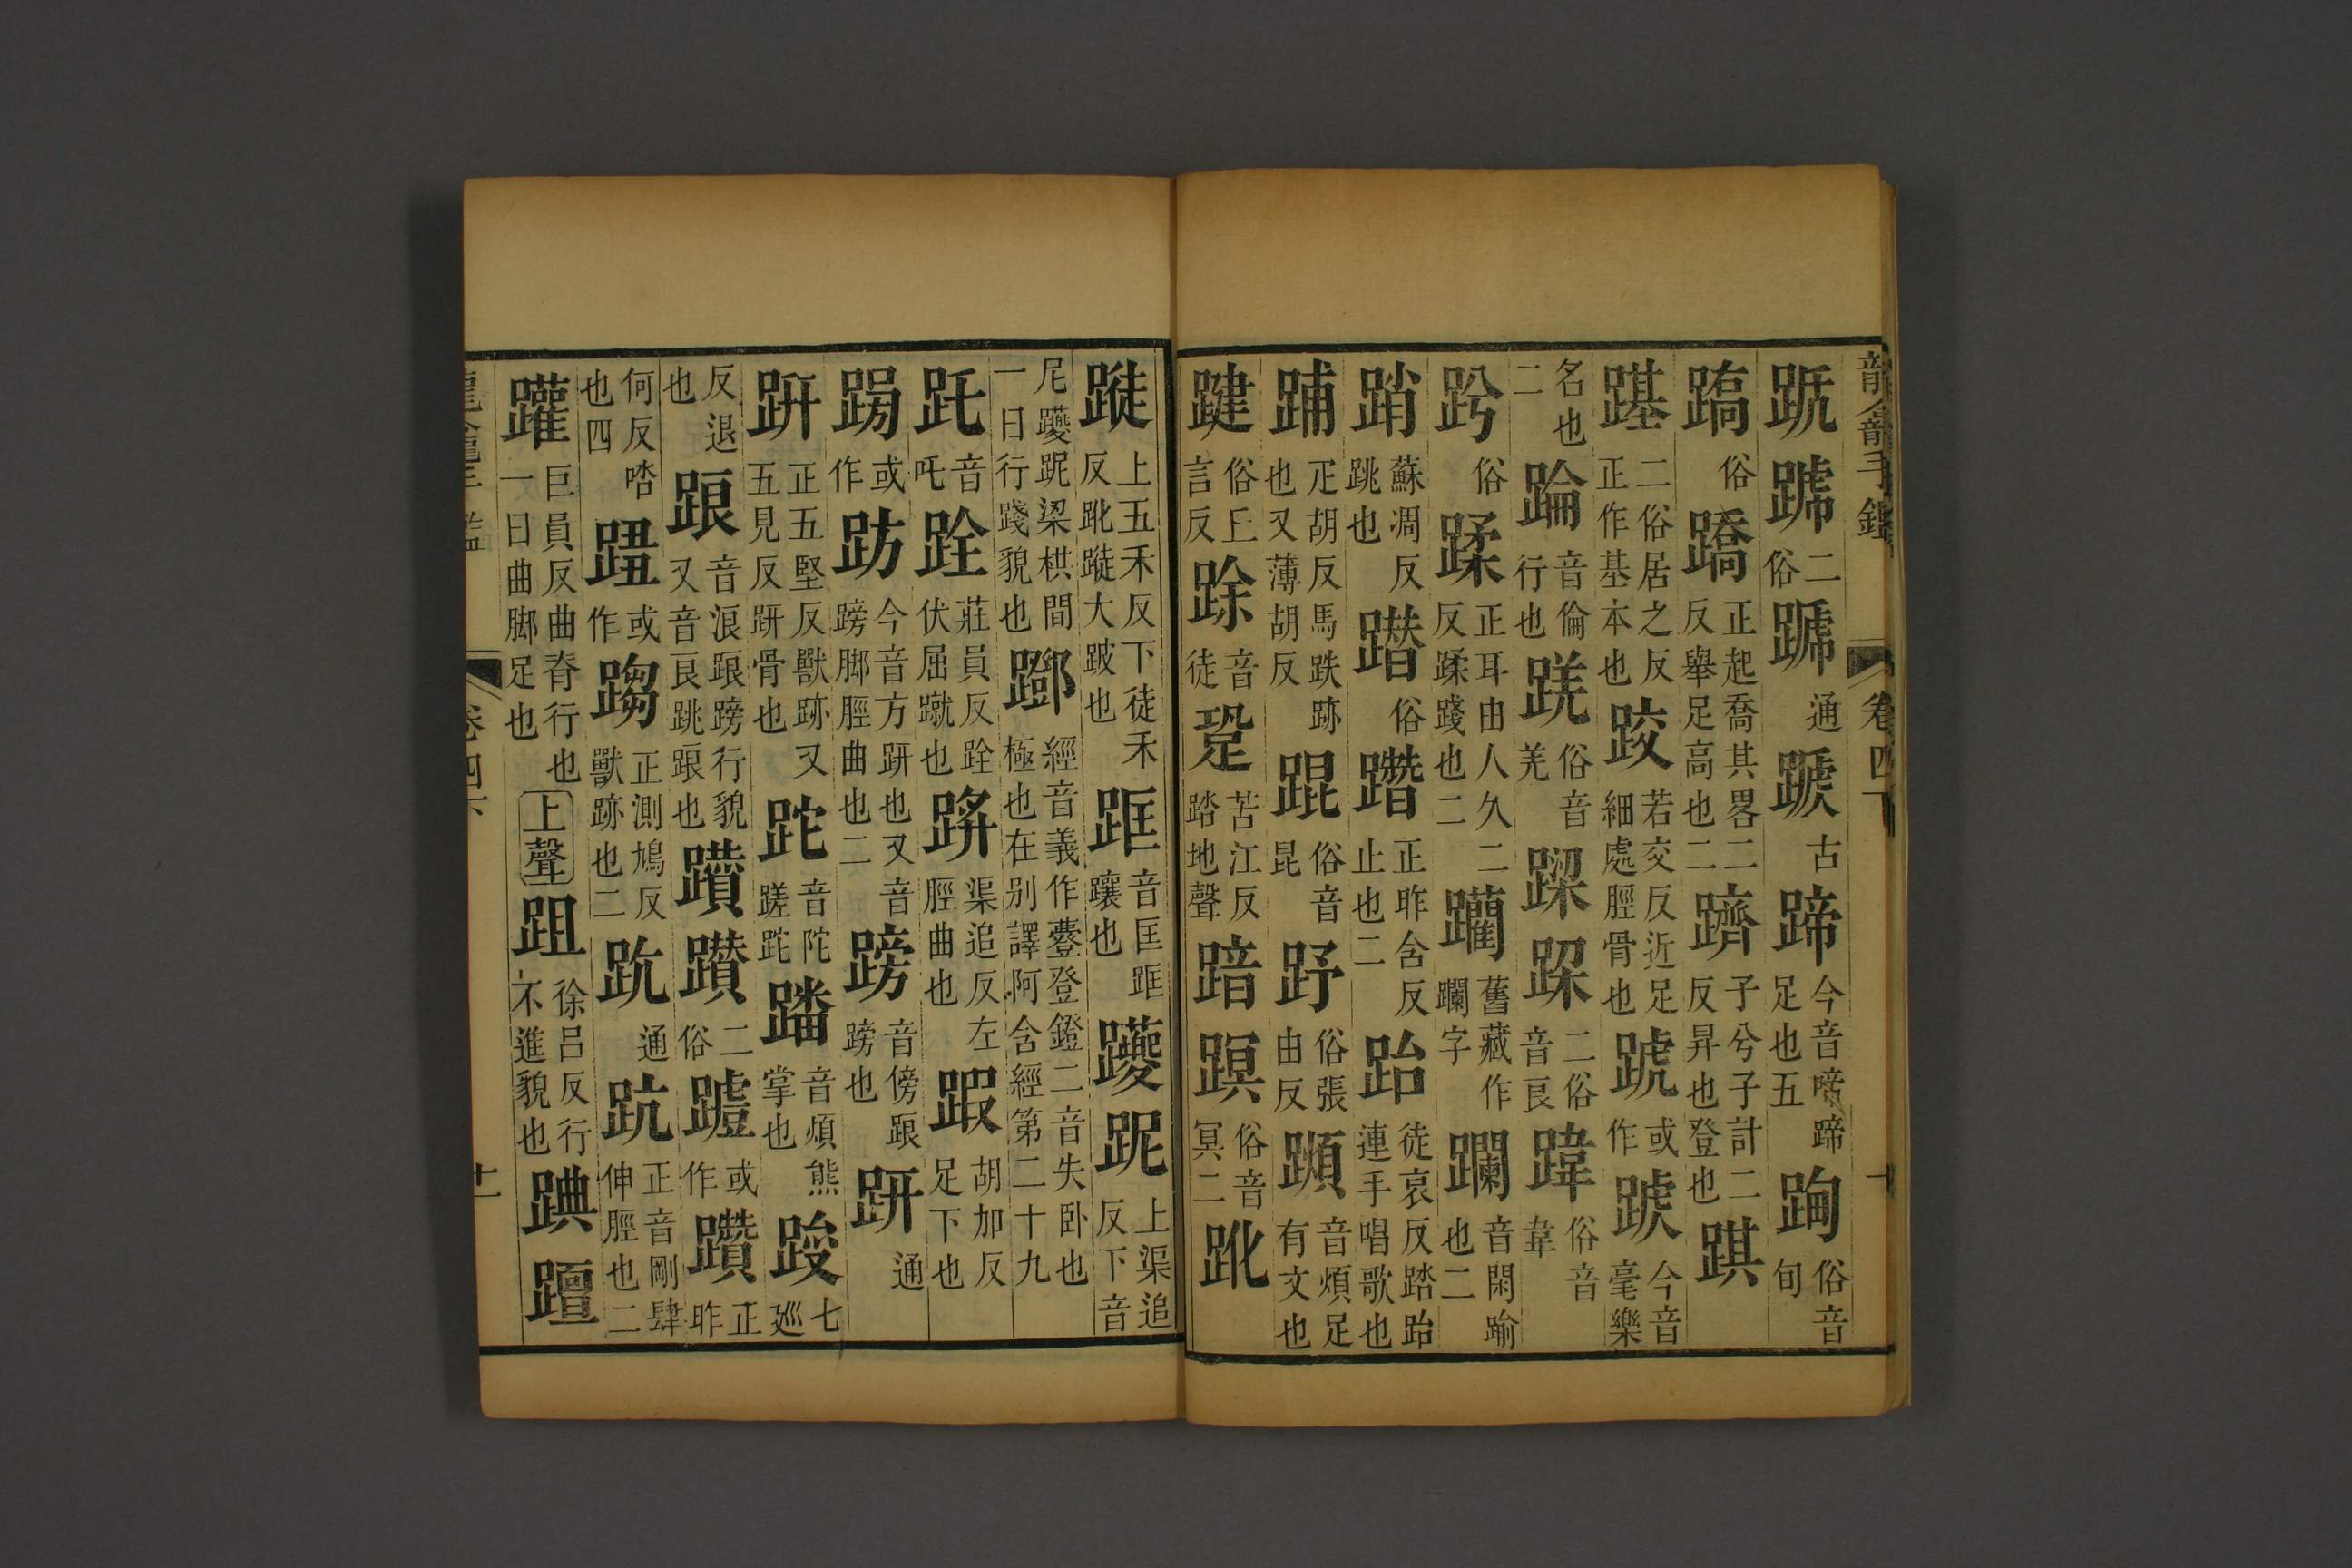 龍龕手鑑 卷四 十
䟗𨂤二俗𨃱通𨄐古蹄今音啼蹄足也五跔俗音旬
𨃤俗蹻正起喬其畧二反舉足高也二躋子兮子計二反昇也登也踑
䠋二俗居之反正作基本也跤若交反近足細處脛骨也踱或作𨁝今音毫樂
名也二踚音倫行也𨀘俗音羌𨂐𨁽二俗音良踔俗音韋
𧿼俗蹂正耳由人久二反蹂踐也二躝舊藏作躝字躝音閑踰也二
踃蘇凋反跳也𨅔俗𨅊正昨含反止也二跆徒哀反踏跆連手唱歌也
䠮疋胡反馬跌跡也又薄胡反䠅俗音昆𧿮俗張由反䠰音煩足有文也
踺俗㠪言反跿音徒跫苦江反踏地聲䠃𨃑俗音冥二䟢
蹝上五禾反下徒禾反䟢蹝大跛也𨀕音匡𨀕躟也躨跜上渠追反下音
尼躨跜梁棋間一曰行踐貌也𨄇經音義作㽅登鐙二音失卧也極也在别譯阿含經第二十九
𧿶音吒跧莊員反跧伏屈蹴也𨂲渠追反左脛曲也𨁼胡加反足下也
𨁷或作趽今音方趼也又音蹄脚脛曲也二蹄音傍踉蹄也趼通
趼正五堅反獸跡又五見反趼骨也跎音陀蹉跎蹯音煩熊掌也踆七廵
反退也踉音浪踉蹄行貌又音良跳踉也𨆃𨇃二俗𨇁或作躦正昨
何反喒也四䟓或作𨁡正測鳩反獸跡也二䟘通䟘正音剛肆伸脛也二
躩巨員反曲脊行也一曰曲脚足也上聲跙徐呂反行不進貌也䠄䠤
龍龕手鑑 卷四 十一